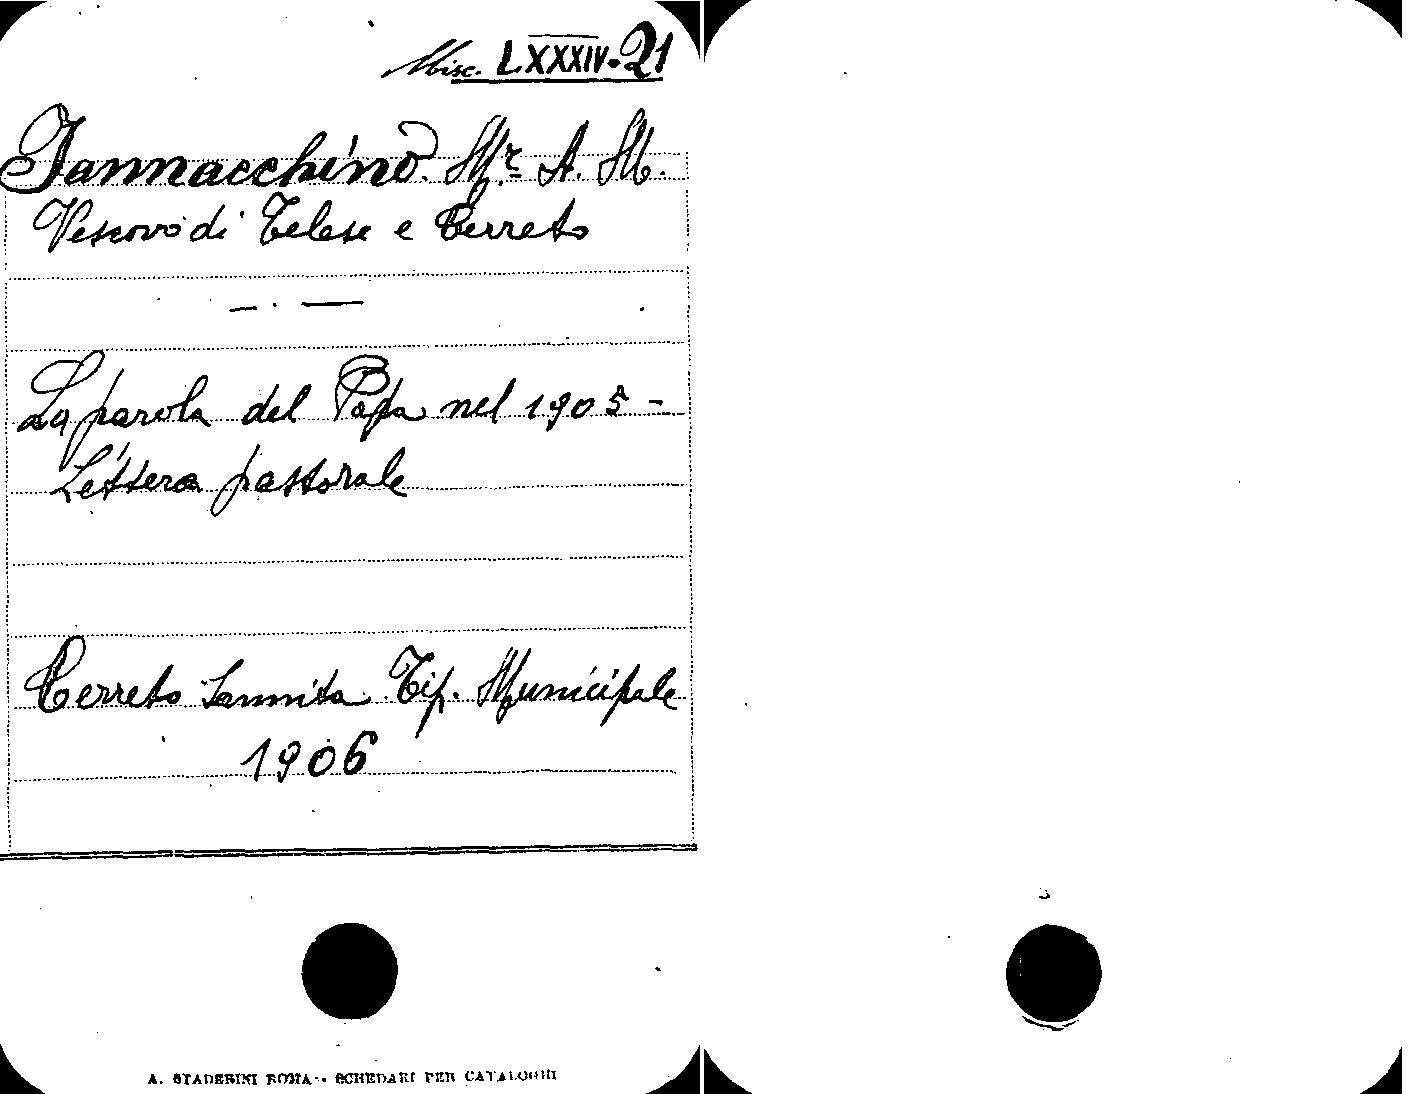 Misc. LXXXIV-21
Iannacchino. Mr. A. M.
Vescovo di Telese e Cerreto
La parola del Papa nel 1905 -
Lettera pastorale
Cerreto Sannita Tip. Municipale
1906
A. STADERINI ROMA - SCHEDARI PER CATALOGHI